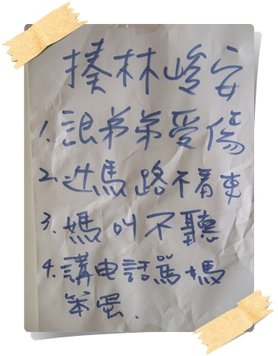 揍林峻安
1. 讓弟弟受傷
2. 过馬路不看車
3. 媽叫不聽
4. 講电話罵媽
笨蛋.